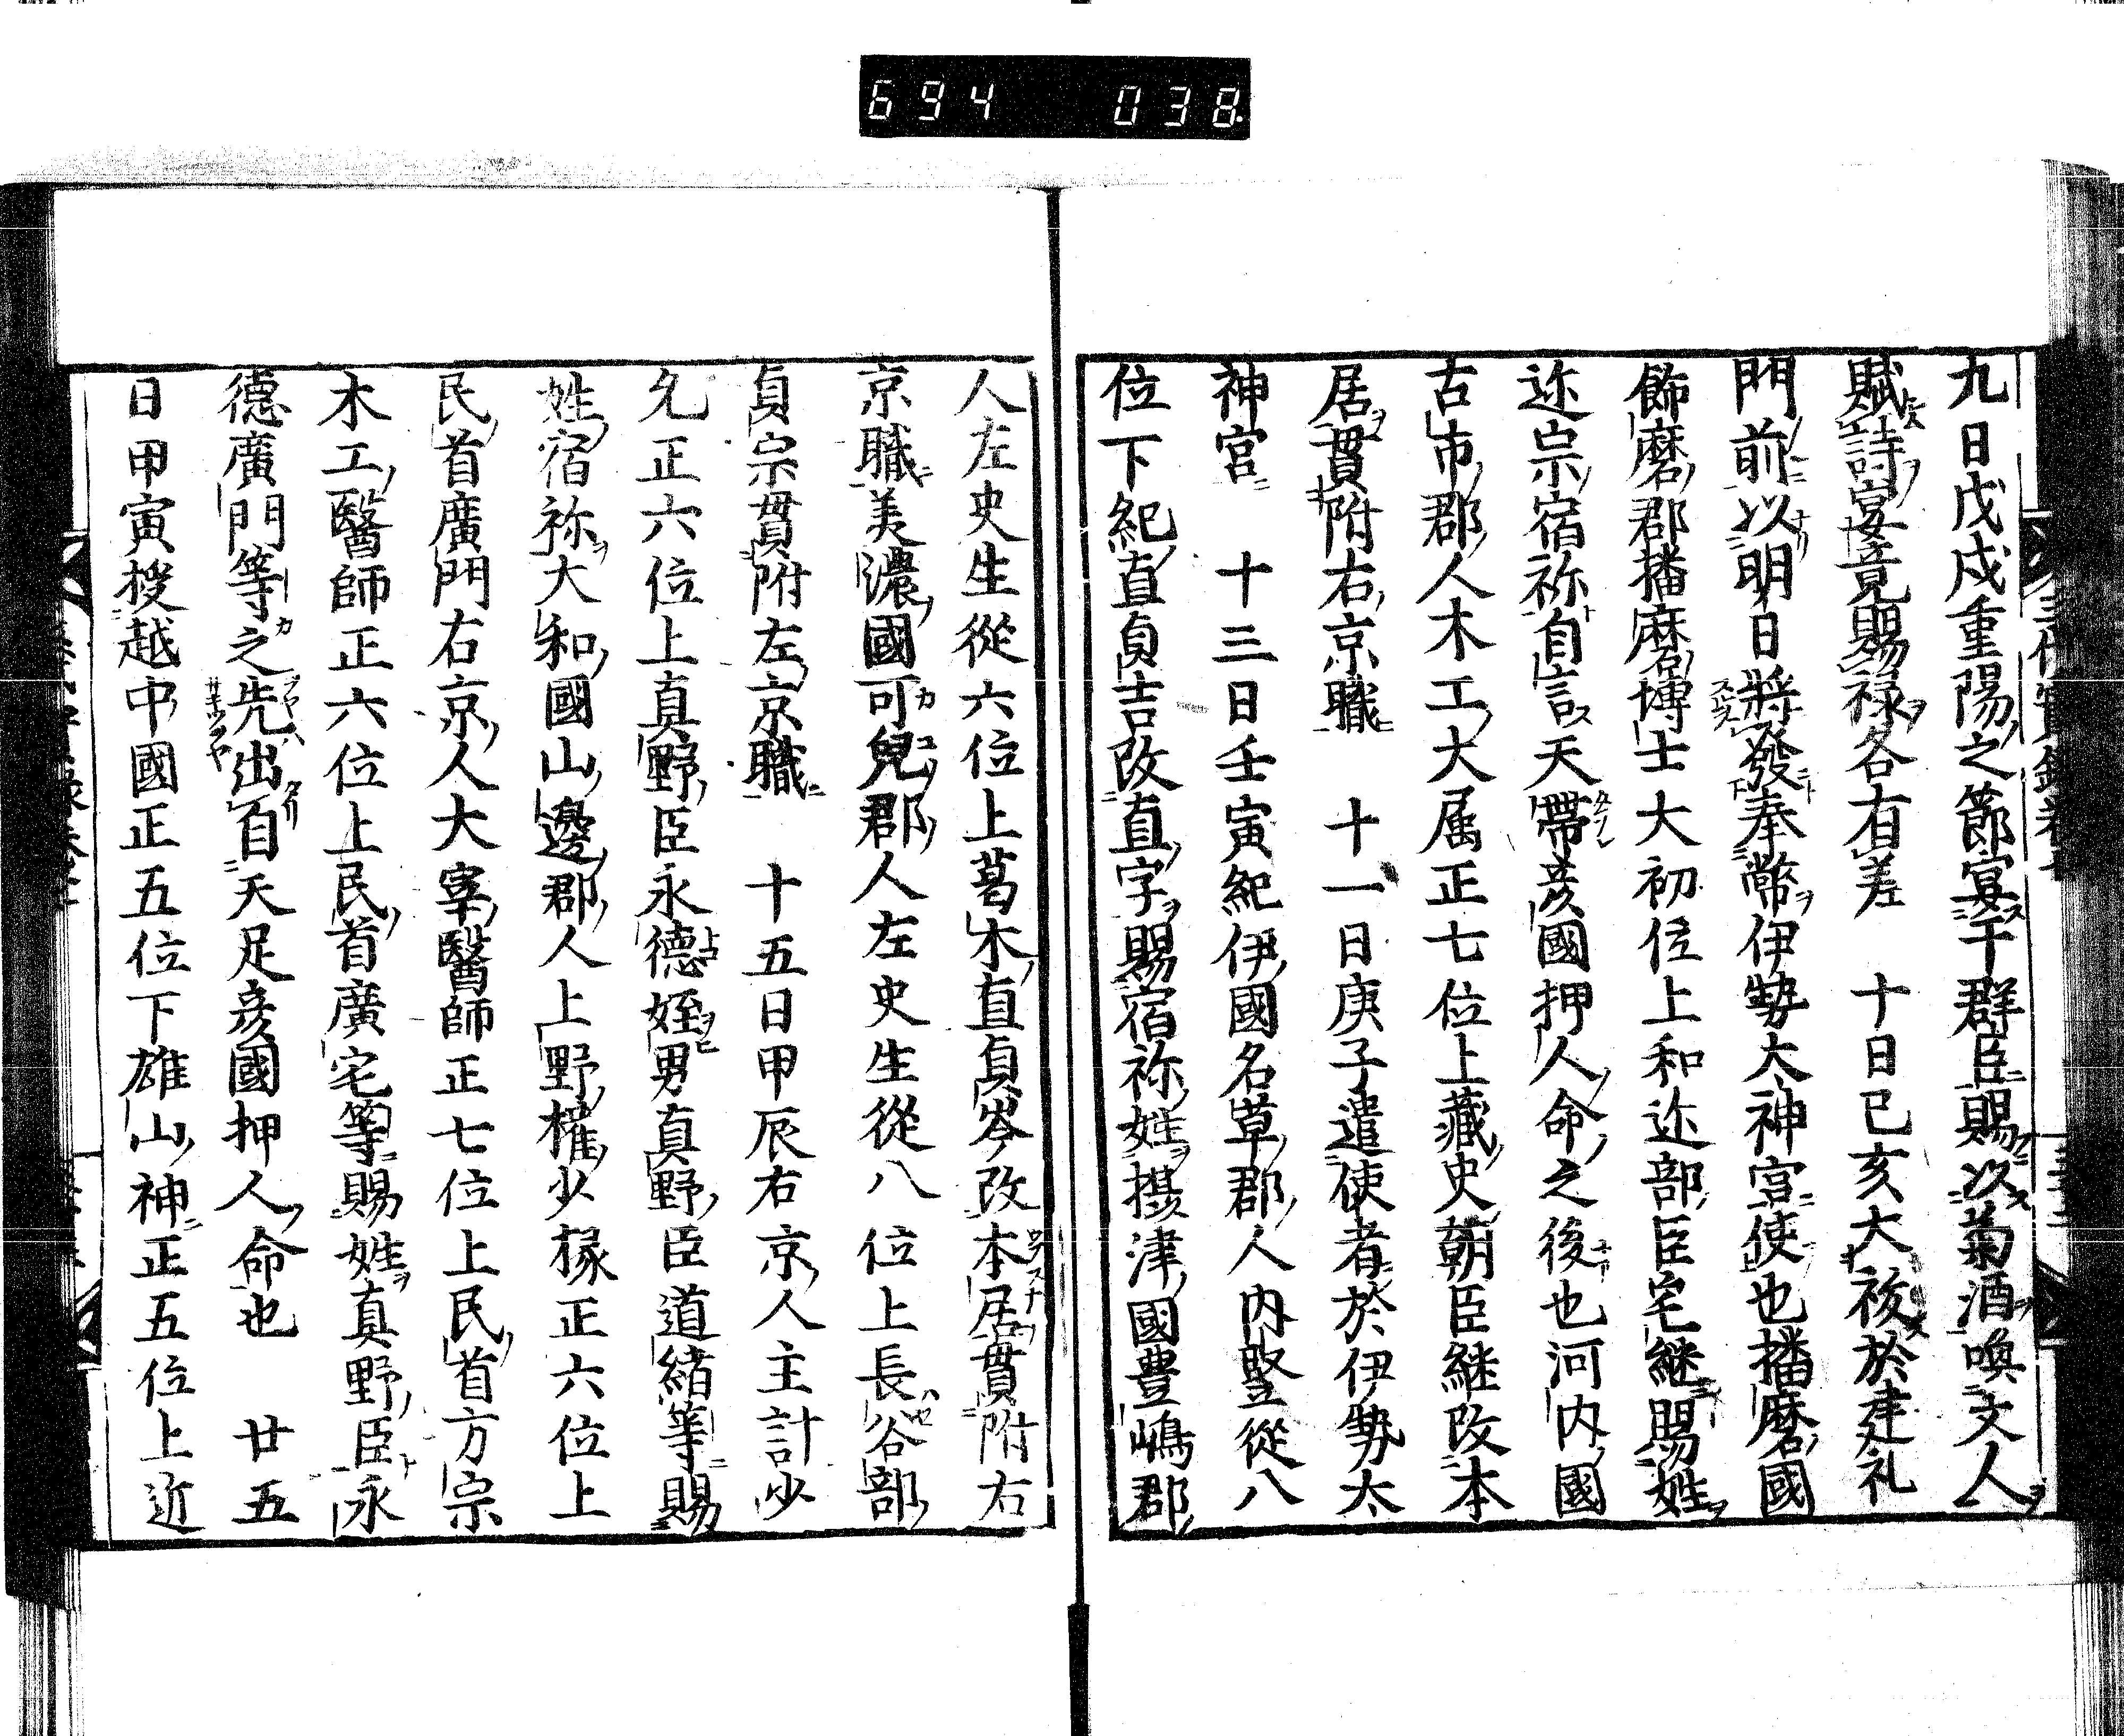 694 038
九日戊戌重陽之節宴于群臣賜以菊酒喚文人
賦詩宴竟賜禄各有差　十日己亥大祓於建礼
門前以明日將發奉幣伊勢大神宮使也播磨國
餝磨郡播磨博士大初位上和迩部臣宅継賜姓
迩宗宿祢自言天帶彦國押人命之後也河内國
古市郡人木工大属正七位上蔵史朝臣継改本
居貫附右京職　十一日庚子遣使者於伊勢太
神宮　十三日壬寅紀伊國名草郡人内竪從八
位下紀直貞吉改直字賜宿祢姓攝津國豊嶋郡
人左史生從六位上葛木直貞岑改本居貫附右
京職美濃國可兒郡人左史生從八位上長谷部
貞宗貫附左京職　十五日甲辰右京人主計少
允正六位上真野臣永德姪男真野臣道緒等賜
姓宿祢大和國山邊郡人上野權少掾正六位上
民首廣門右京人大宰醫師正七位上民首方宗
木工醫師正六位上民首廣宅等賜姓真野臣永
德廣門等之先出自天足彦國押人命也　廿五
日甲寅授越中國正五位下雄山神正五位上近